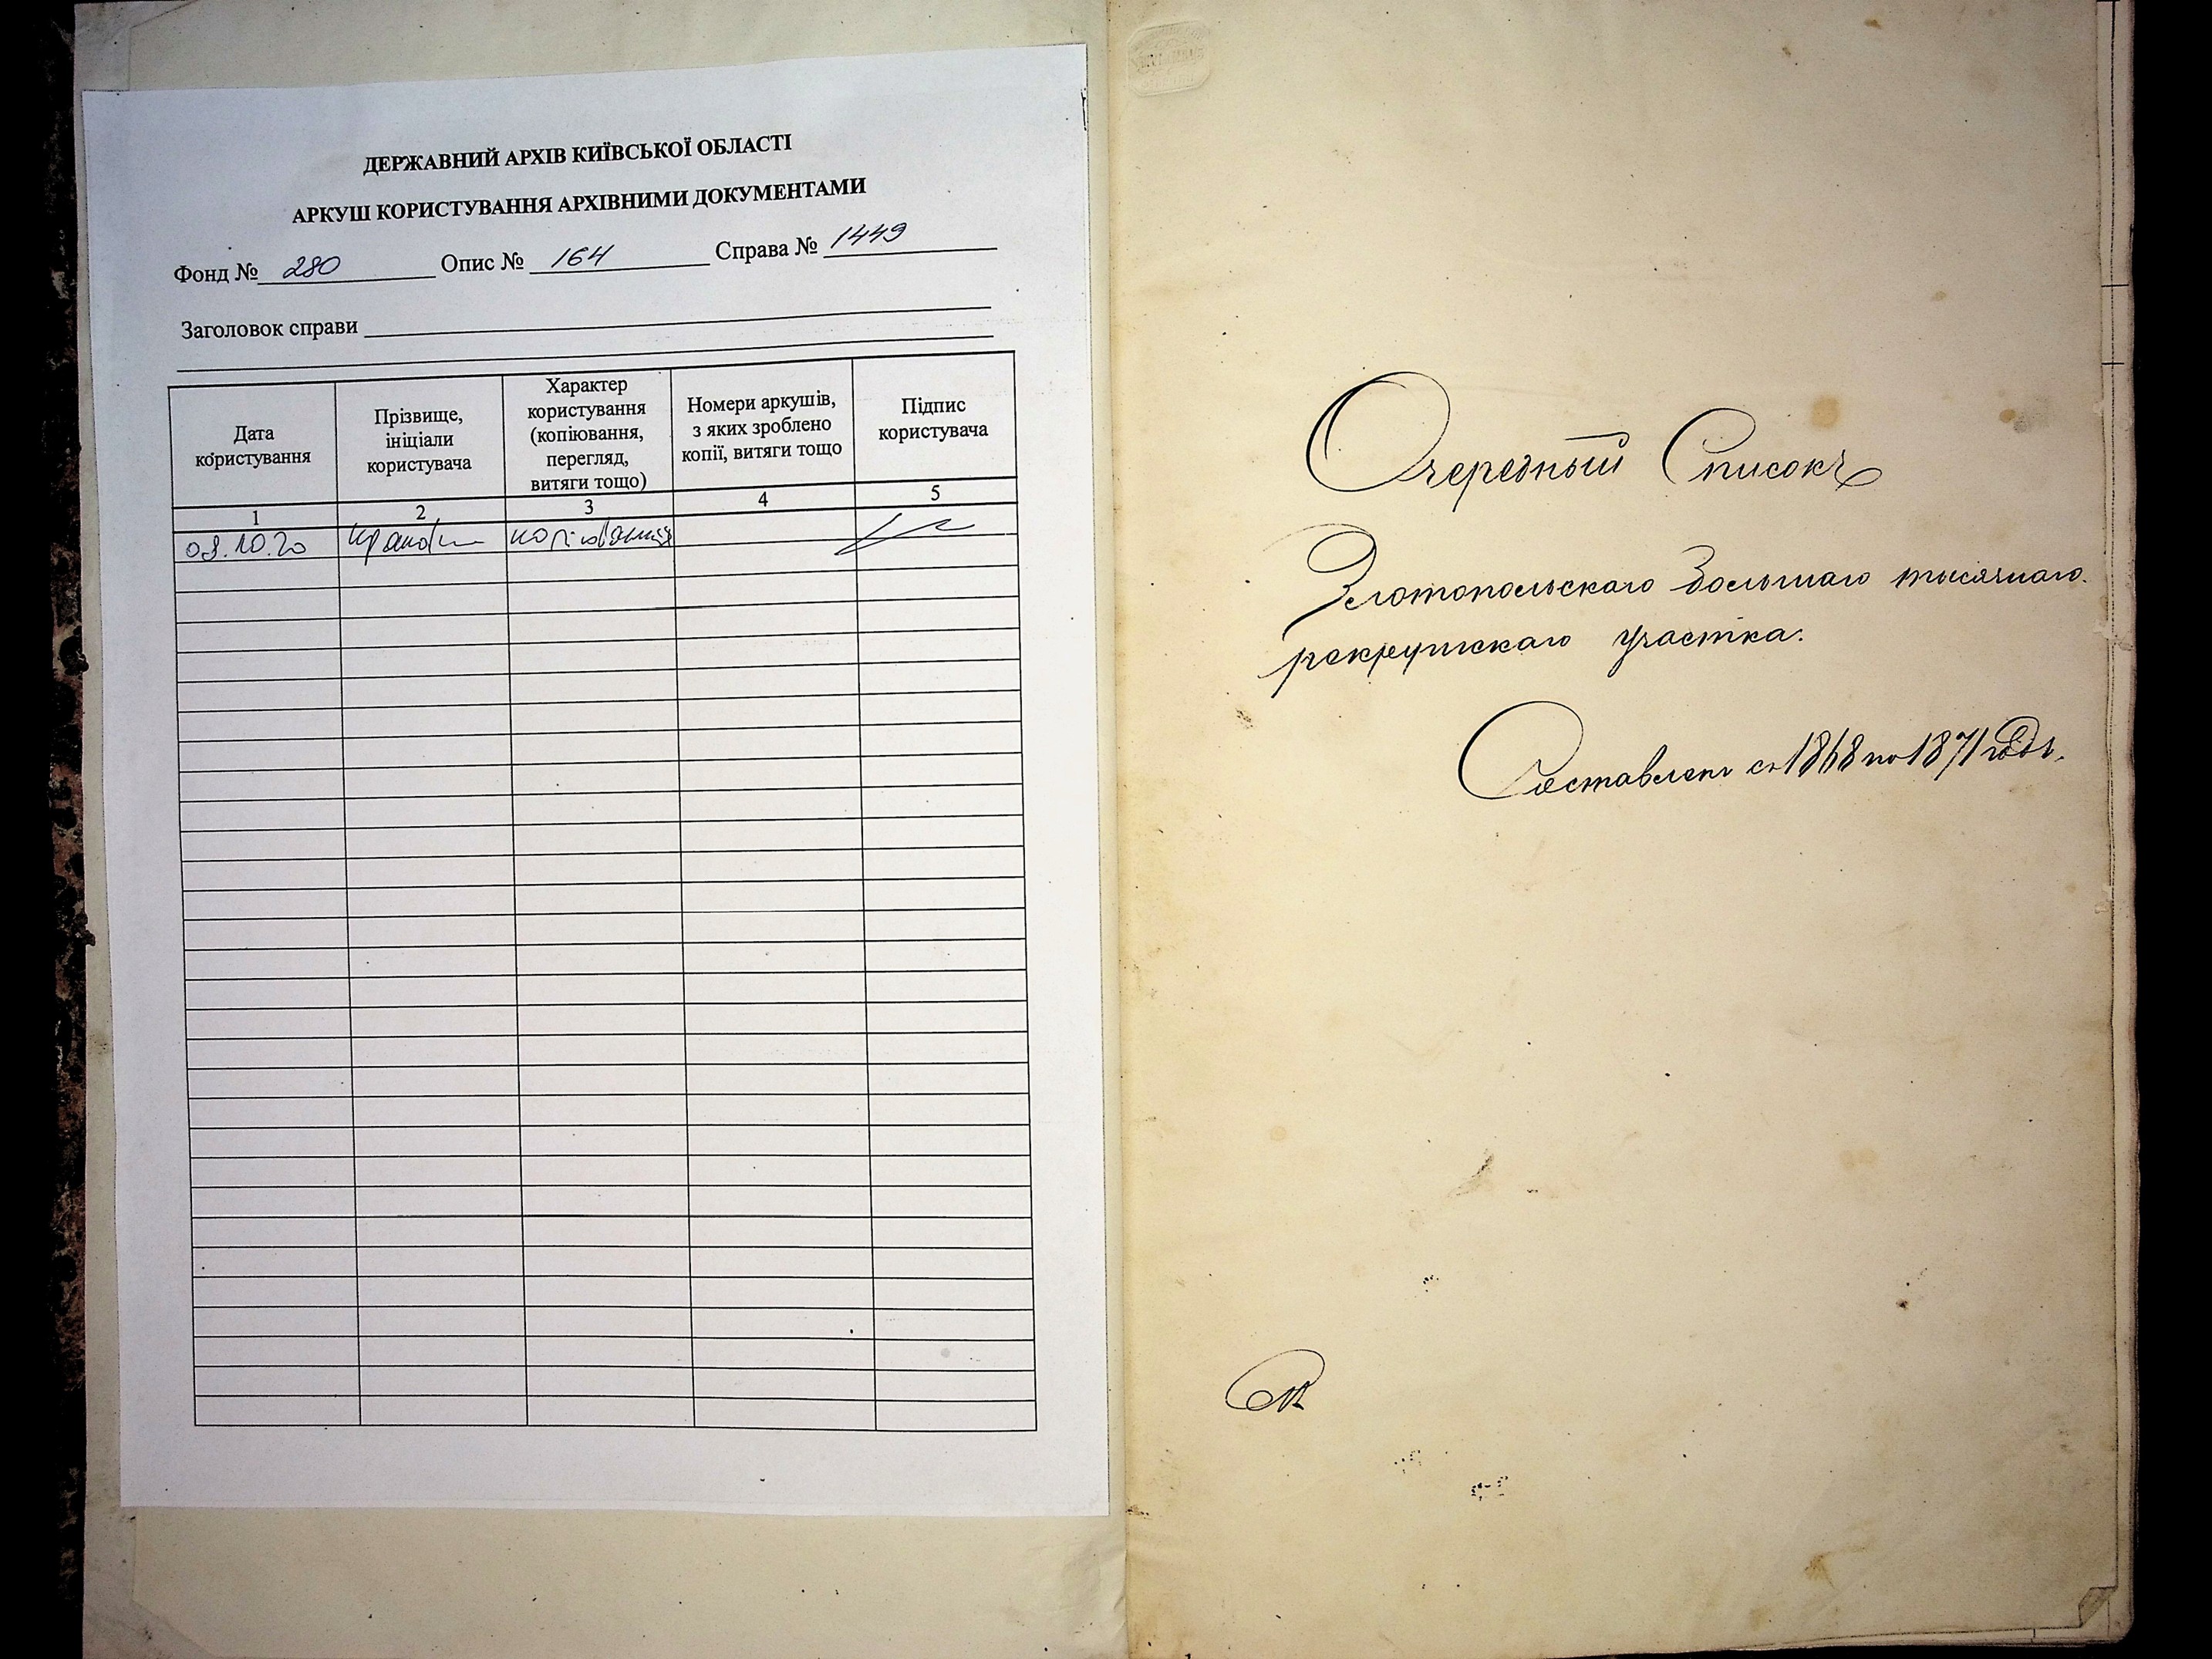 ДЕРЖАВНИЙ АРХІВ КИЇВСЬКОЇ ОБЛАСТІ
АРКУШ КОРИСТУВАННЯ АРХІВНИМИ ДОКУМЕНТАМИ
Фонд № 280 Опис № 164 Справа № 1449
Заголовок справи
Дата користування
Прізвище, ініціали користувача
Характер користування (копіювання, перегляд, витяги тощо)
Номери аркушів, з яких зроблено копії, витяги тощо
Підпис користувача
1 2 3 4 5
копіювання
Очередный Списокъ
Златопольскаго большаго тысячнаго
рекрутскаго участка.
Составленъ съ 1868 по 1871 годъ.